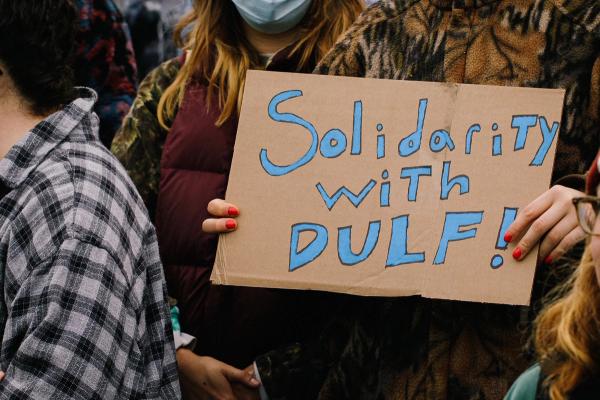 SolidariTy
wiTh
DULF!